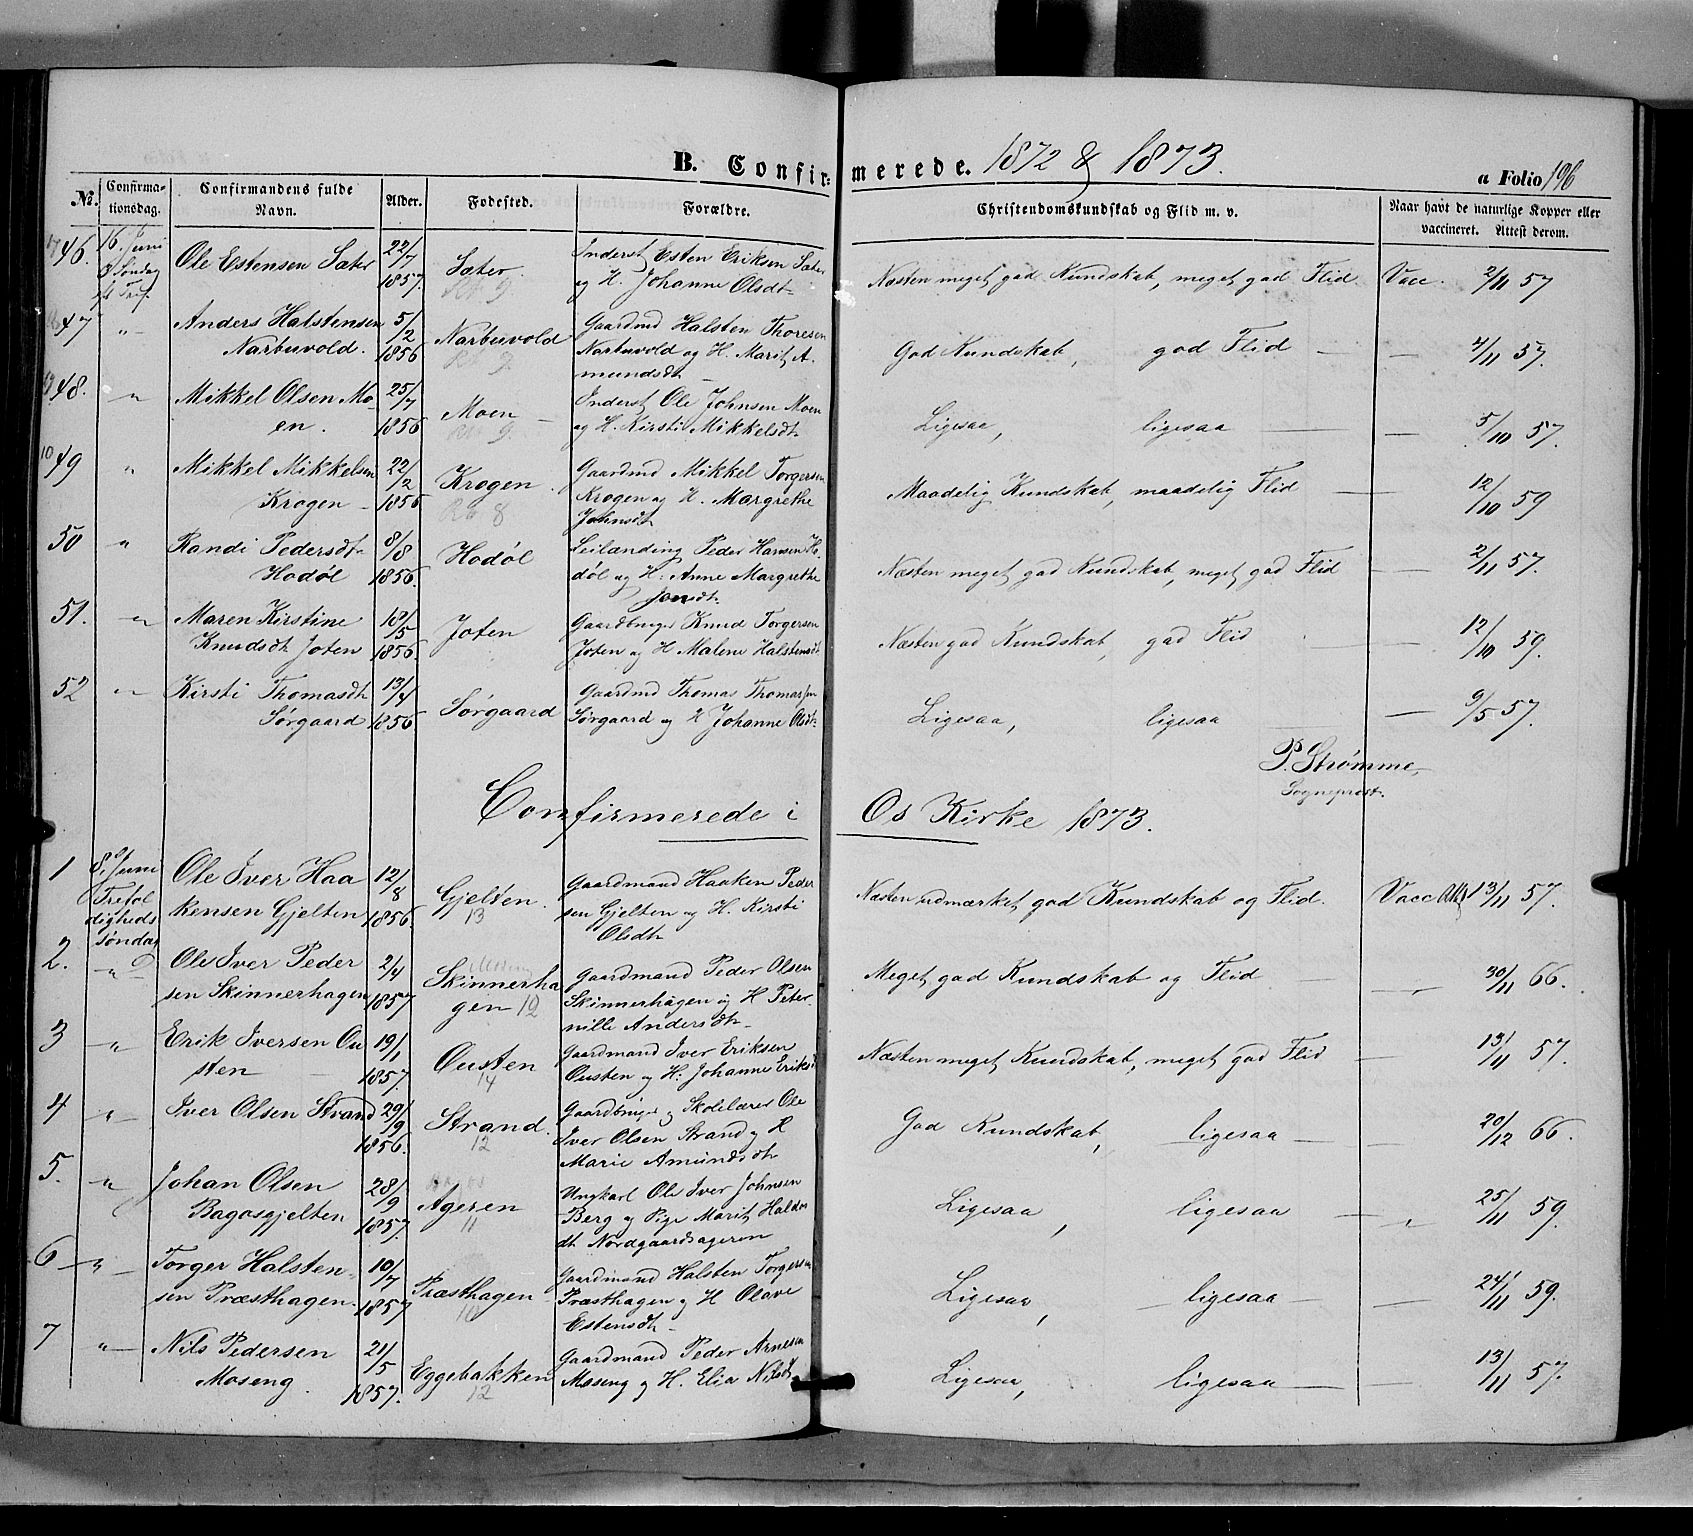 B. Confirmerede. 1872 & 1873.
a Folio 196
No. Confirmationsdag. Confirmandens fulde Navn. Alder. Fødested. Forældre. Christendomskundskab og Flid m. v. Naar havt de naturlige Kopper eller vaccineret. Attest derom.
46. 16. Juni Ole Estensen Sæter 22/7 1857. Sæter. Inderst Esten Eriksen Sæter
3 Søndag og H. Johanne Olsdt. Næsten meget god Kundskab, meget god Flid Vacc. 2/11 57
eft Trf.
47 " Anders Halstensen 5/2 1856 Narbuvold Gaardmd Halsten Thoresen
Narbuvold. Narbuvold og H. Marit A- God Kundskab, god Flid — 4/11 57.
mundsdt
48. " Mikkel Olsen Mo- 25/7 1856 Moen Inderst Ole Johnsen Moen
en. og H. Kirsti Mikkelsdt Ligesaa, ligesaa — 5/10 57.
49 " Mikkel Mikkelsen 22/2 1856 Krogen Gaardmd Mikkel Torgersen
Krogen Krogen og H. Margrethe Maadelig Kundskab, maadelig Flid — 12/10 59
Johnsdt
50 " Randi Pedersdt 8/8 1856. Hodøl Leilænding Peder Hansen Ho-
Hodøl døl og H: Anne Margrethe Næsten meget god Kundskab, meget god Flid — 2/11 57.
Jonsdt.
51. " Maren Kirstine 18/5 1856. Joten Gaardbruger Knud Torgersen
Knudsdt Joten Joten og H Malene Halstensdt Næsten god Kundskab, god Flid — 12/10 59.
52 " Kirsti Thomasdt 13/4 1856 Sørgaard Gaardmd Thomas Thomassen
Sørgaard Sørgaard og H Johanne Olsdt Ligesaa, ligesaa — 9/5 57.
P. Strømme,
Sogneprest.
Comfirmerede i Os Kirke 1873.
1 8. Juni Ole Iver Haa 12/8 1856. Gjelten. Gaardmand Haaken Peder
Trefol kensen Gjelten 13 sen Gjelten og H. Kirsti Næsten udmærket god Kundskab og Flid. Vacc 13/11 57.
digheds Olsdt
søndag
2. " Ole Iver Peder 2/4 1857 Skinnerha Gaardmand Peder Olsen
sen Skinnerhagen gen 12 Skinnerhagen og H Peter- Meget god Kundskab og Flid — 30/11 66.
nille Andersdt
3 " Erik Iversen Ou 19/1 1857. Ousten Gaardmand Iver Eriksen
sten 14 Ousten og H: Johanne Eriksd Næsten meget Kundskab, meget god Flid — 13/11 57.
4 " Iver Olsen Strand 29/9 1856. Strand. Gaardbruger og Skolelærer Ole
12 Iver Olsen Strand og H God Kundskab, ligesaa — 20/12 66.
Marie Amundsdt
5. " Johan Olsen 28/9 1857. Ageren Ungkarl Ole Iver Johnsen
Bagosgjelten 11 Berg og Pige Marit Haldo Ligesaa, ligesaa — 25/11 59.
dt Nordgaardsageren
6 " Torger Halsten- 10/7 1857 Præsthagen Gaardmand Halsten Torgersen
sen Præsthagen. 10 Præsthagen og H Olave Ligesaa, ligesaa — 24/11 59.
Estensdt
7 " Nils Pedersen 21/5 1857. Eggebakken Gaardmand Peder Arnesen
Moseng. 12 Moseng og H. Elia Nilsdt Ligesaa, ligesaa — 13/11 57.